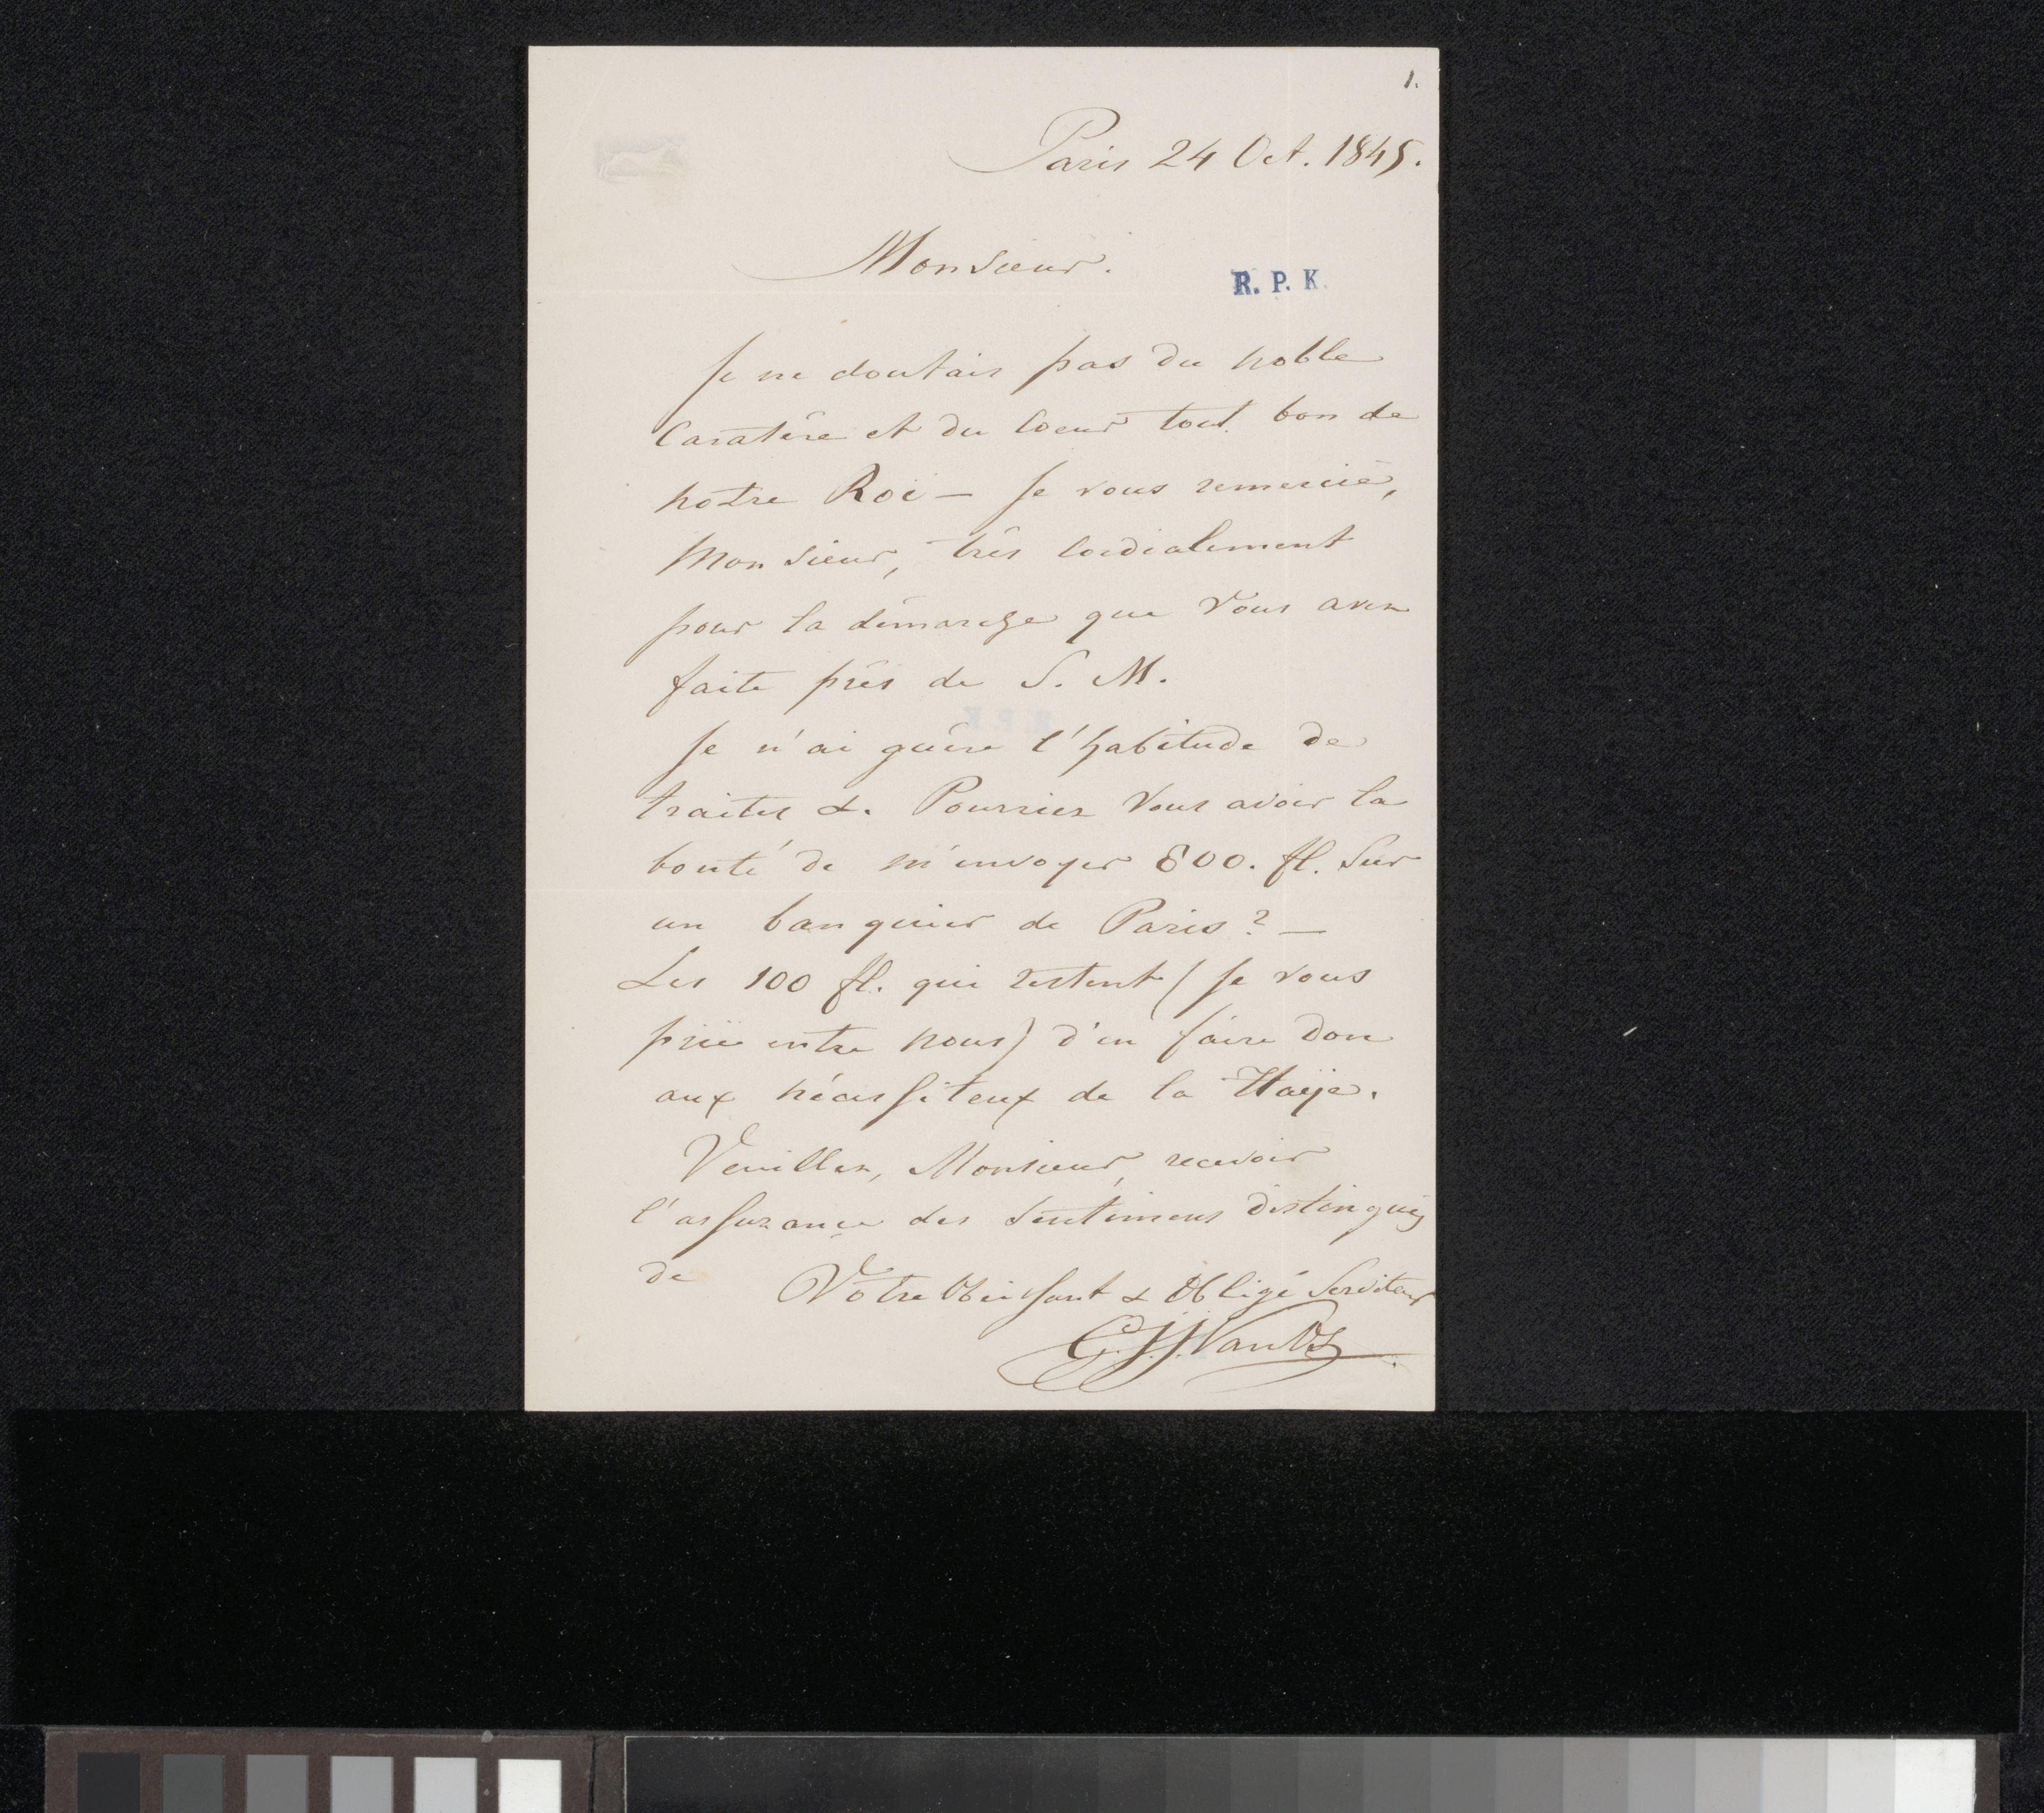 1.
Paris 24 Oct. 1845.
Monsieur.
R. P. K.
Je ne doutais pas du noble
Caratère et du Coeur tout bon de
notre Roi — Je vous remercie,
Monsieur, très Cordialement
pour la démarche que Vous avez
faite près de S. M.
Je n'ai guère l'habitude de
traites &. Pourriez Vous avoir la
bonté de m'envoyer 800. fl. Sur
un banquier de Paris? —
Les 100 fl. qui restent (Je vous
prie entre nous) d'en faire Don
aux nécessiteux de la Haije.
Veuillez, Monsieur, recevoir
l'assurance des Sentimens distingués
de
Votre Obéissant & Obligé Serviteur